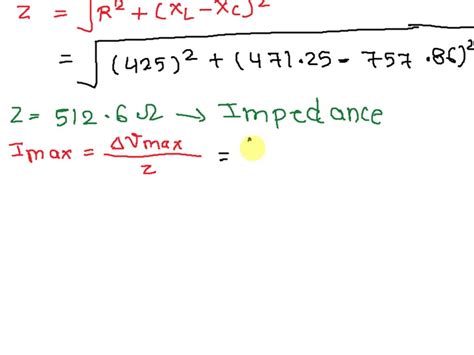 Z = √R² + (X_L - X_C)²
= √(425)² + (471.25 - 757.86)²
Z = 512.6 Ω → Impedance
Imax = ΔVmax / Z =